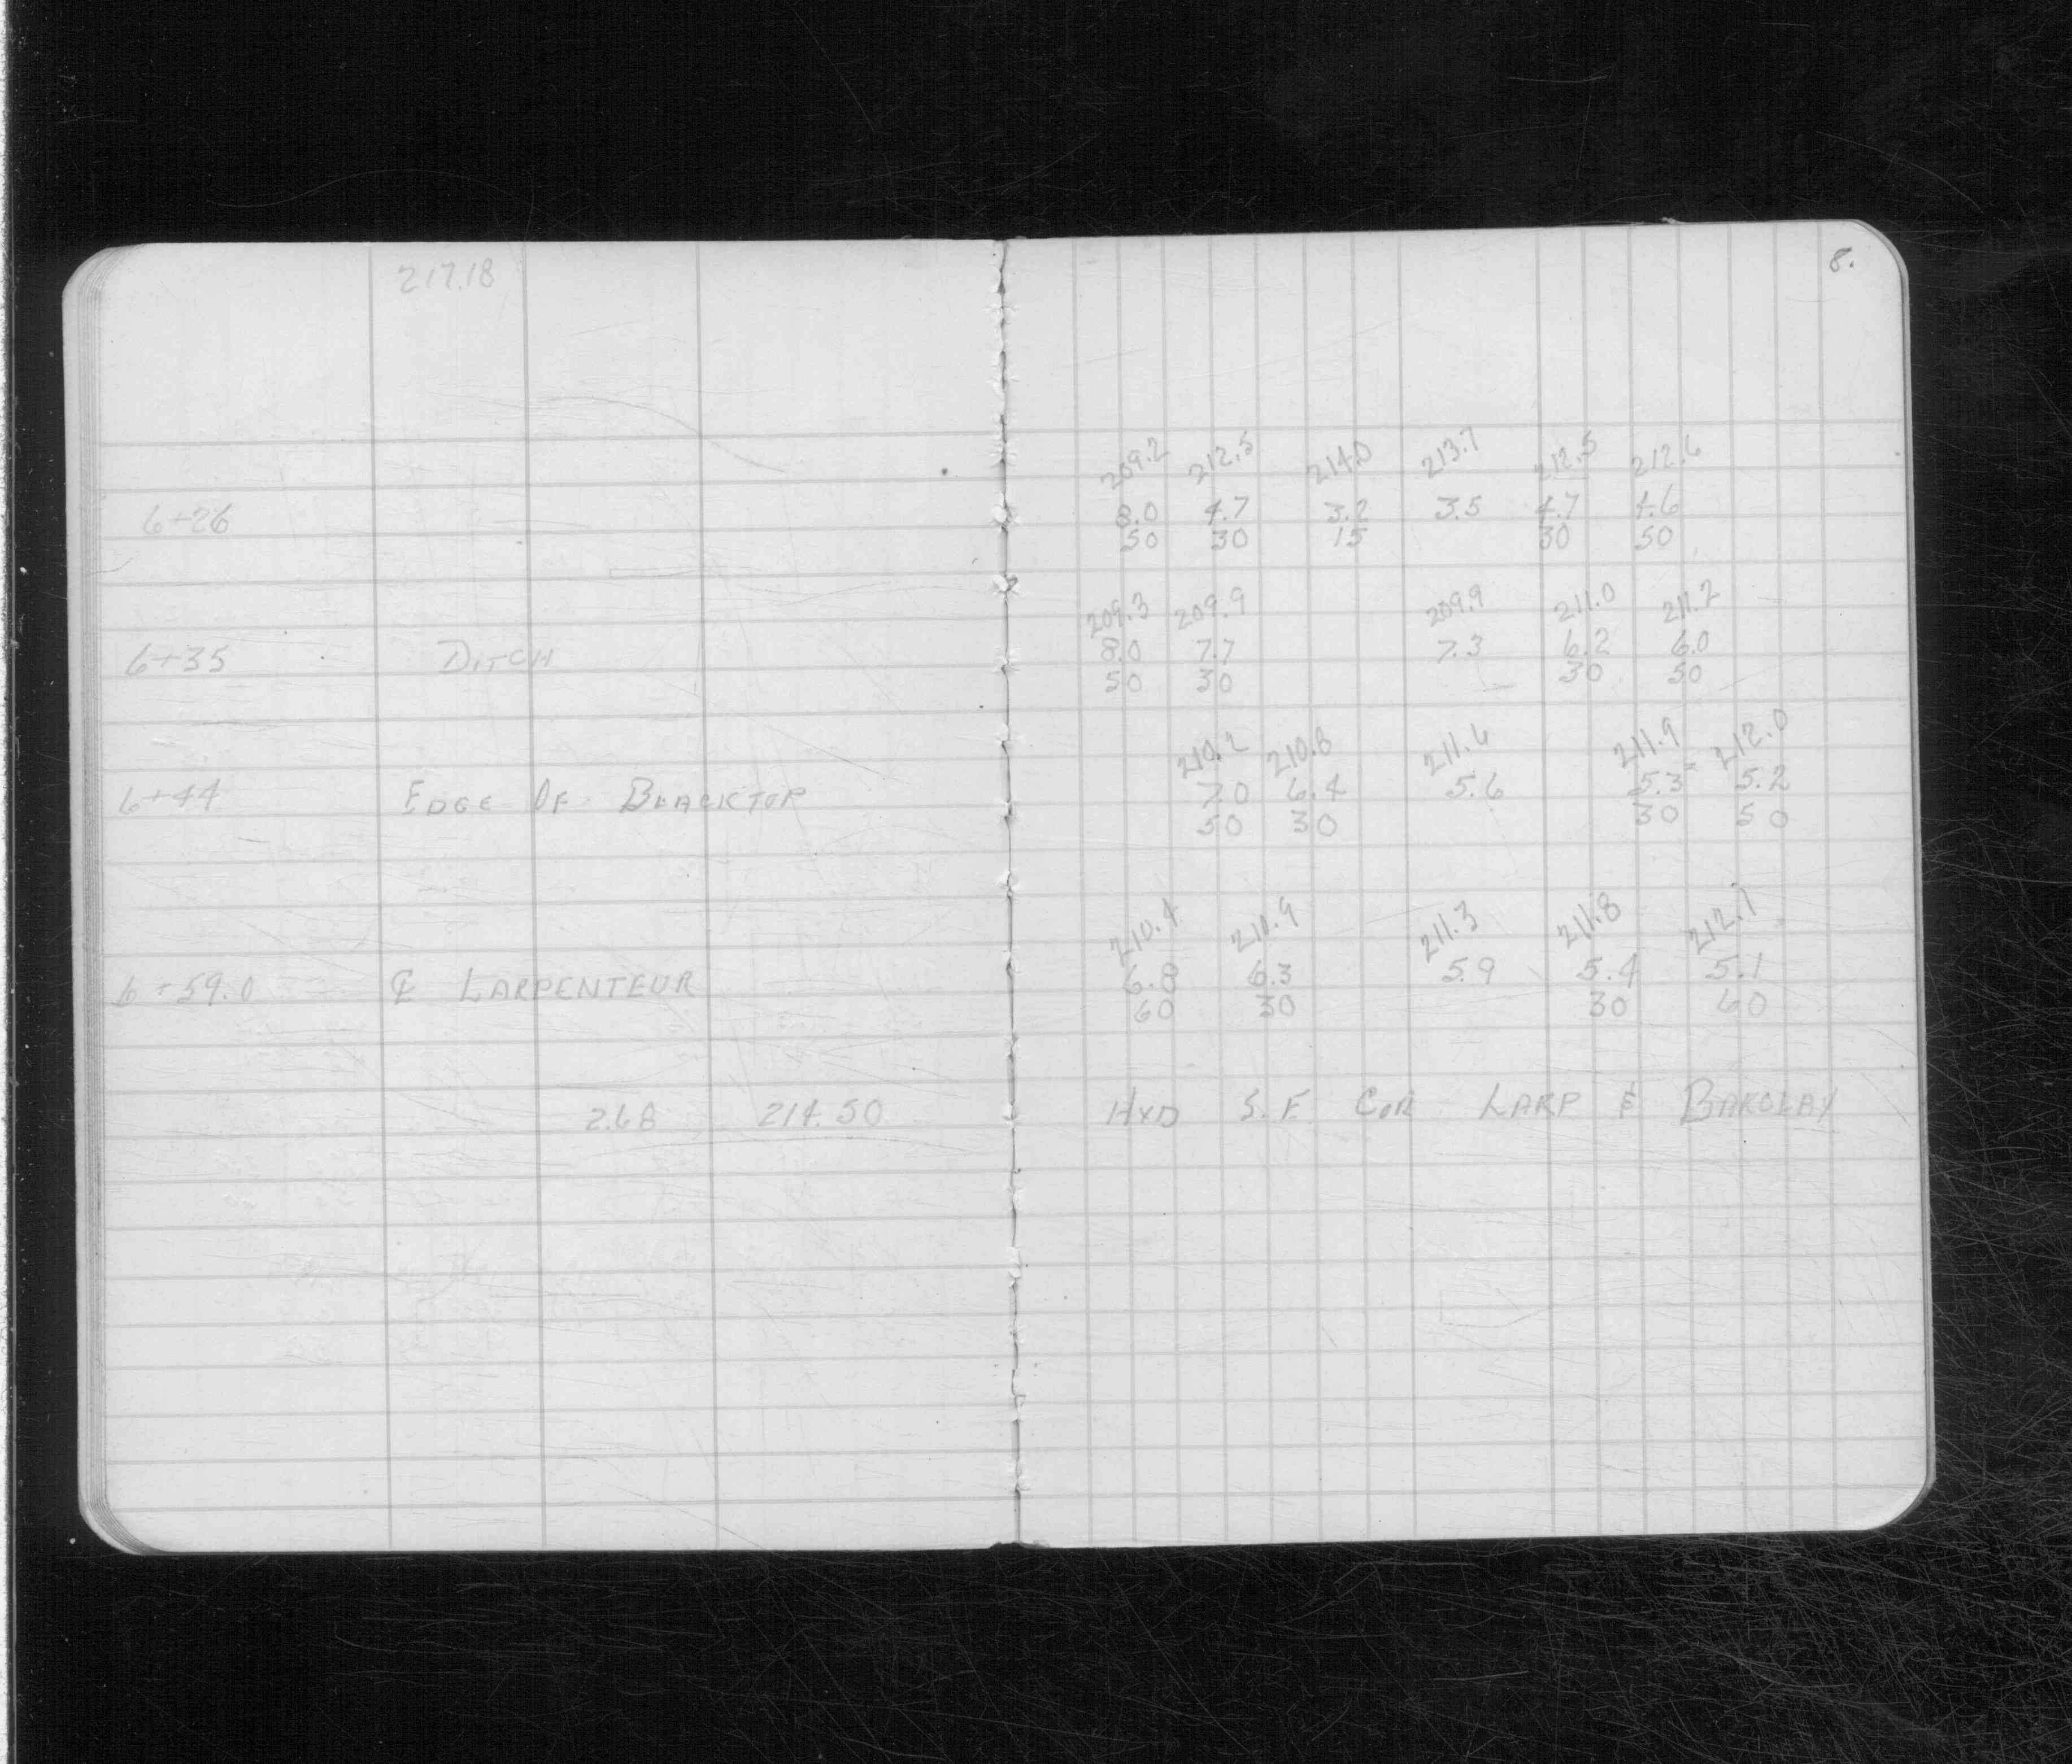 217.18
8.
209.2 212.5 214.0 213.7 212.5 212.6
6+26 8.0 4.7 3.2 3.5 4.7 4.6
50 30 15 30 50
209.3 209.9 209.9 211.0 211.2
6+35 DITCH 8.0 7.7 7.3 6.2 6.0
50 30 30 50
210.2 210.8 211.6 211.9 212.0
6+44 EDGE OF BLACKTOP 7.0 6.4 5.6 5.3 5.2
50 30 30 50
210.4 210.9 211.3 211.8 212.1
6+59.0 ℄ LARPENTEUR 6.8 6.3 5.9 5.4 5.1
60 30 30 60
2.68 214.50 HYD S.E. COR LARP & BARCLAY